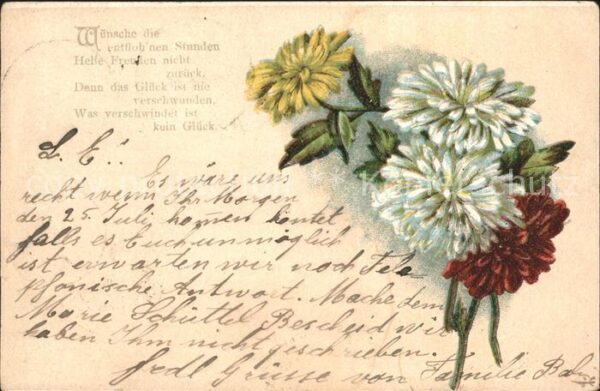 Wünsche die
entfloh'nen Stunden
Helle Freuden nicht
zurück,
Denn das Glück ist nie
verschwunden,
Was verschwindet ist
kein Glück.
L. E.:
Es wäre uns
recht wenn Ihr Morgen
den 25. Juli komen köntet
falls es Euch unmöglich
ist erwarten wir noch Tele
pfonische Antwort. Mache dem
Marie Schüttel Bescheid wir
haben Ihm nicht geschrieben.
frdl Grüsse von Familie